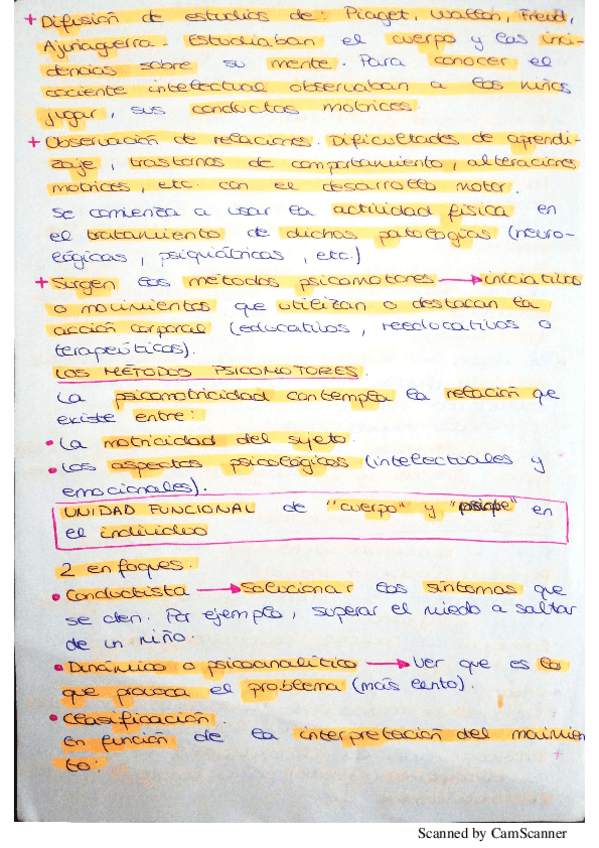 + Difusión de estudios de: Piaget, Wallon, Freud,
Ajuriaguerra. Estudiaban el cuerpo y las inci-
dencias sobre su mente. Para conocer el
cociente intelectual observaban a los niños
jugar, sus conductas motrices.
+ Observación de relaciones. Dificultades de aprendi-
zaje, trastornos de comportamiento, alteraciones
motrices, etc. con el desarrollo motor.
Se comienza a usar la actividad física en
el tratamiento de dichas patologías (neuro-
lógicas, psiquiátricas, etc.)
+ Surgen los métodos psicomotores → iniciativas
o movimientos que utilizan o destacan la
acción corporal (educativos, reeducativos o
terapeúticos).
LOS MÉTODOS PSICOMOTORES.
La psicomotricidad contempla la relación que
existe entre:
• La motricidad del sujeto.
• Los aspectos psicológicos (intelectuales y
emocionales).
UNIDAD FUNCIONAL de "cuerpo" y "psique" en
el individuo
2 enfoques.
• Conductista → Solucionar los síntomas que
se den. Por ejemplo, superar el miedo a saltar
de un niño.
• Dinámico o psicoanalítico → Ver que es lo
que provoca el problema (más lento).
• Clasificación.
En función de la interpretación del movimien
to:
Scanned by CamScanner